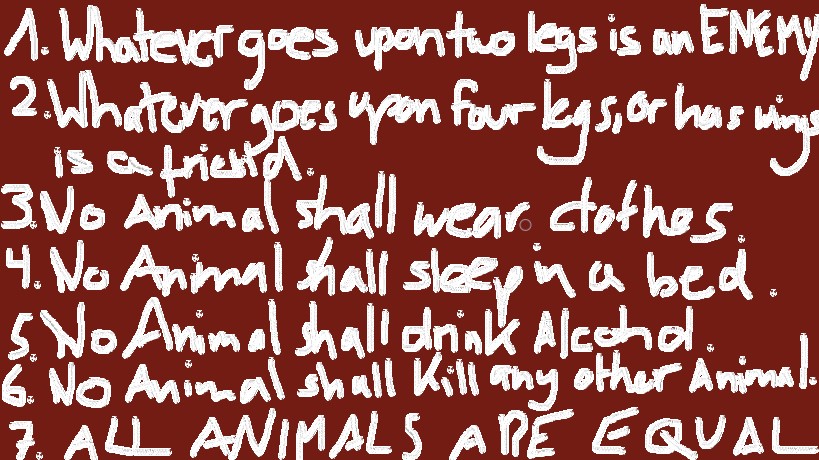 1. Whatever goes upon two legs is an ENEMY
2. Whatever goes upon four legs, or has wings
is a friend.
3. No Animal shall wear clothes.
4. No Animal shall sleep in a bed.
5 No Animal shall drink Alcohol.
6. No Animal shall Kill any other Animal.
7. ALL ANIMALS ARE EQUAL